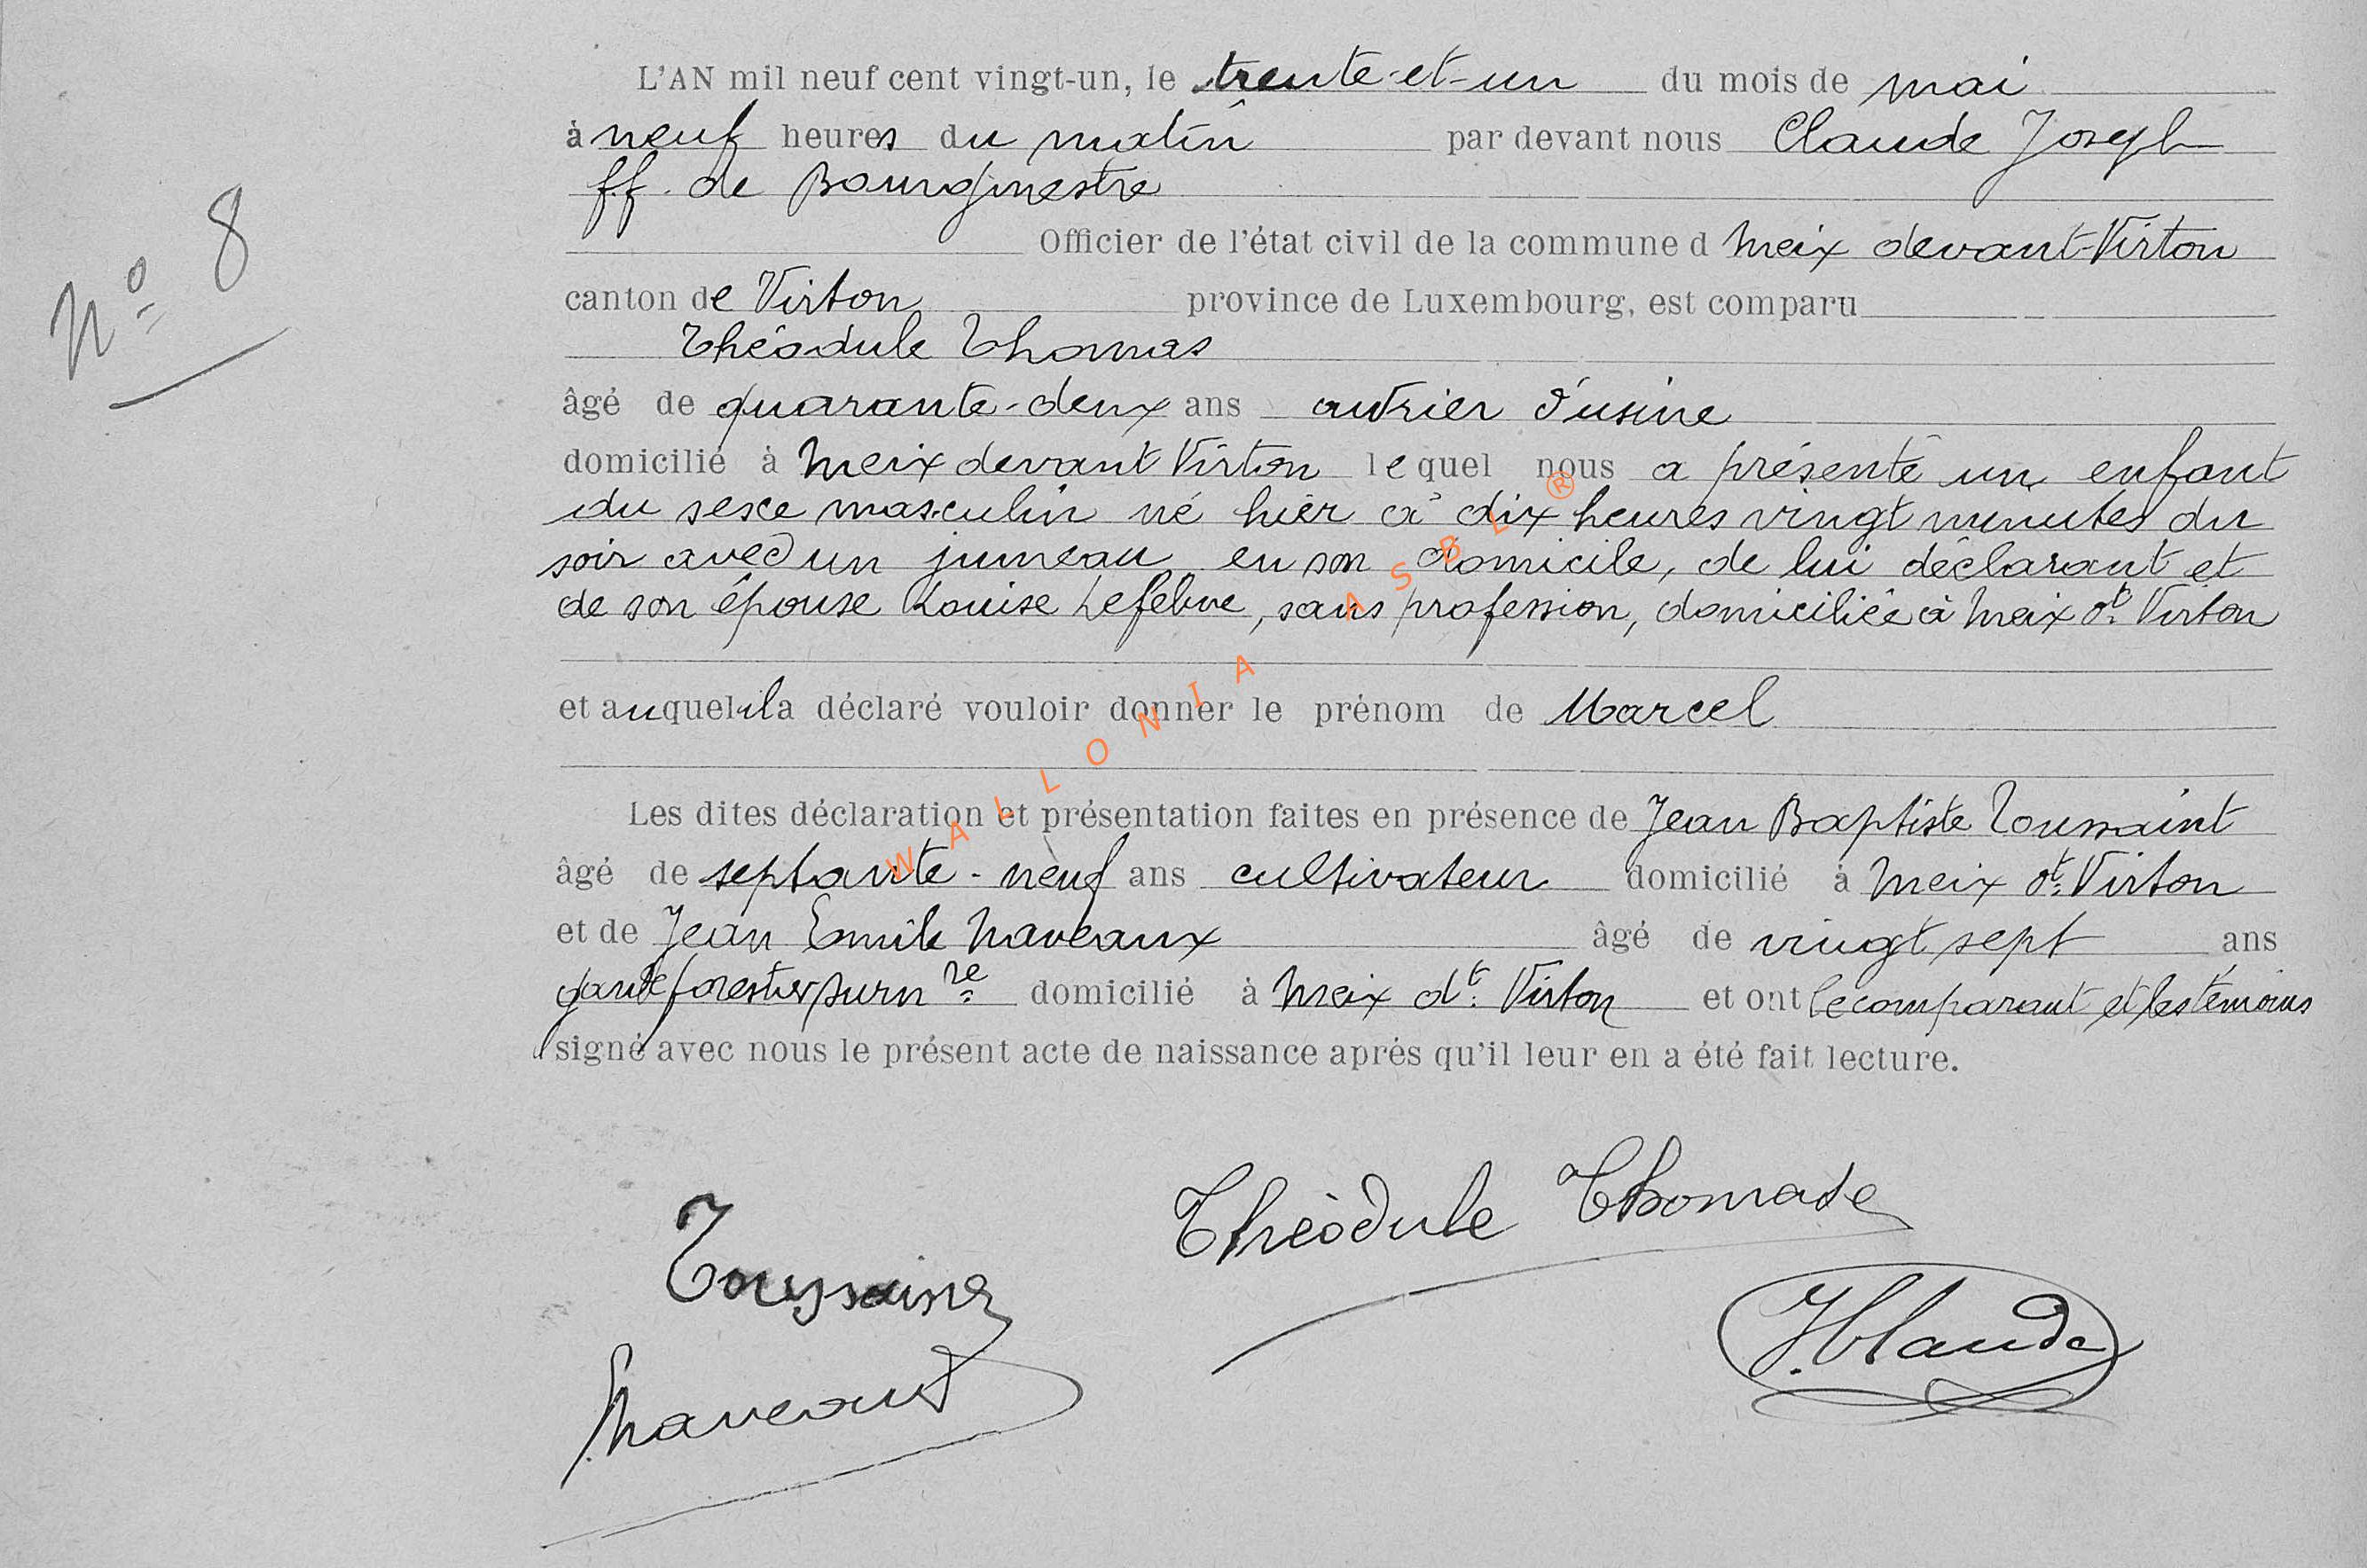 L'AN mil neuf cent vingt-un, le trente-et-un du mois de mai
à neuf heures du matin par devant nous Claude Joseph
ff. de Bourgmestre
N° 8
Officier de l'état civil de la commune d Meix devant-Virton
canton de Virton province de Luxembourg, est comparu
Théodule Thomas
âgé de quarante-deux ans ouvrier d'usine
domicilié à Meix devant Virton lequel nous a présenté un enfant
du sexe masculin né hier à dix heures vingt minutes du
soir avec un jumeau en son domicile, de lui déclarant et
de son épouse Louise Lefebvre, sans profession, domiciliée à Meix dt Virton
et auquel il a déclaré vouloir donner le prénom de Marcel
Les dites déclaration et présentation faites en présence de Jean Baptiste Toussaint
âgé de septante-neuf ans cultivateur domicilié à Meix dt Virton
et de Jean Emile Naveaux âgé de vingt sept ans
garde forestier surnre domicilié à Meix dt Virton et ont le comparant et les témoins
signé avec nous le présent acte de naissance après qu'il leur en a été fait lecture.
Théodule Thomas
Toussaint
J. Claude
Naveaux
WALLONIA ASBL ®